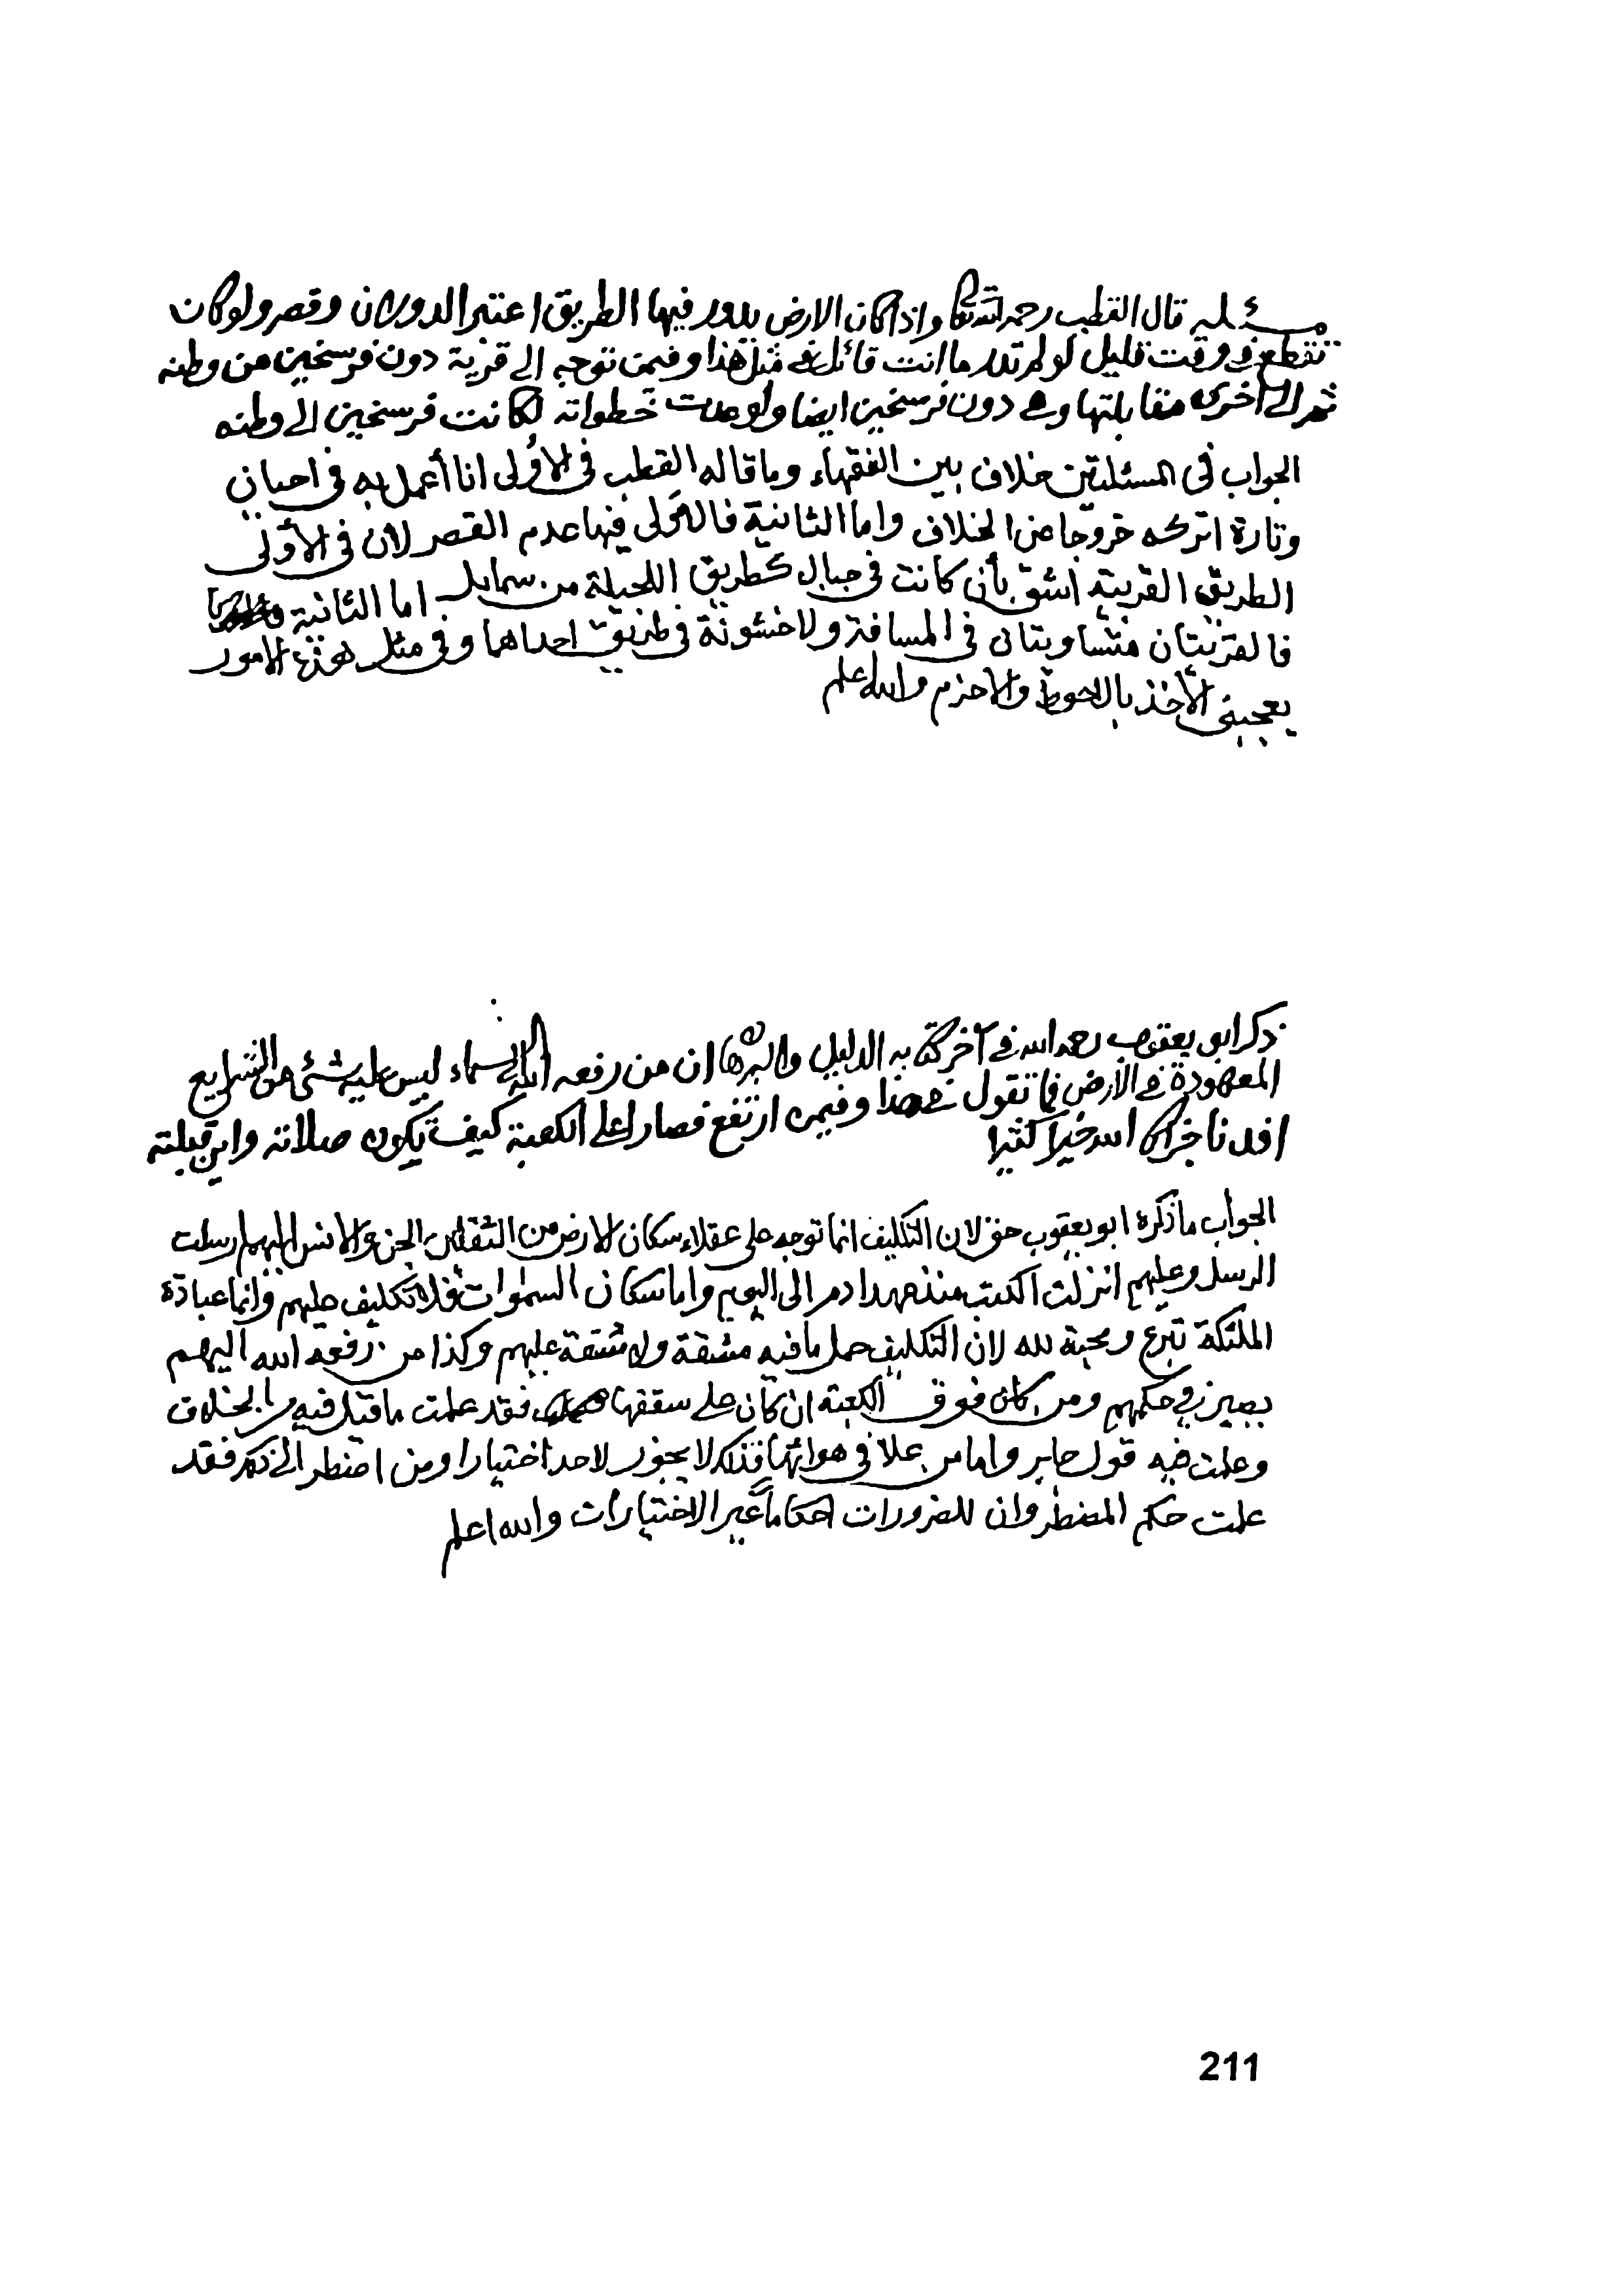 مسئلة قال القطب رحمه الله تعالى واذا كان الارض يدور فيها الطريق اعتبر الدوران وقصر ولو كان
تقطع في وقت قليل لو لم تدر ما انت قائل في مثل هذا وفيمن توجه الى قرية دون فرسخين من وطنه
ثم الى اخرى مقابلتها وهي دون فرسخين ايضا ولو عدت خطواته لكانت فرسخين الى وطنه
الجواب في المسئلتين خلاف بين الفقهاء وما قاله القطب في الاولى انا أعمل به في احيان
وتارة اتركه خروجا من الخلاف واما الثانية فالاولى فيها عدم القصر لان في الأولى
الطريق القريبة اشق بأن كانت في جبال كطريق اللجيلة من سمايل اما الثانية
فالقريتان متساويتان في المسافة ولا خشونة في طريق احداهما وفي مثل هذه الامور
يعجبني الأخذ بالاحوط والاحزم والله اعلم
ذكر ابو يعقوب رحمه الله في آخر كتابه الدليل والبرهان ان من رفعه الله الى السماء ليس عليه شئ من الشرايع
المعهودة في الأرض فما تقول في هذا وفيمن ارتفع فصار اعلى الكعبة كيف تكون صلاته واين قبلته
افدنا جزاك الله خيرا كثيرا
الجواب ما ذكره ابو يعقوب حق لان التكليف انما توجه على عقلاء سكان الارض من الثقلين الجن والانس اليهم ارسلت
الرسل وعليهم انزلت الكتب منذ عهد ادم الى اليوم واما سكان السموات فلا تكليف عليهم وانما عبادة
الملئكة تبرع ومحبة لله لان التكليف حمل ما فيه مشقة ولا مشقة عليهم وكذا من رفعه الله اليهم
يصير في حكمهم ومن كان فوق الكعبة ان كان على سقفها فقد علمت ما قيل فيه من الخلاف
وعلمت فيه قول جابر واما من علا في هوائها فذلك لا يجوز لاحد اختيارا ومن اضطر الى ذلك فقد
علمت حكم المضطر وان للضرورات احكاما غير الاختيارات والله اعلم
211